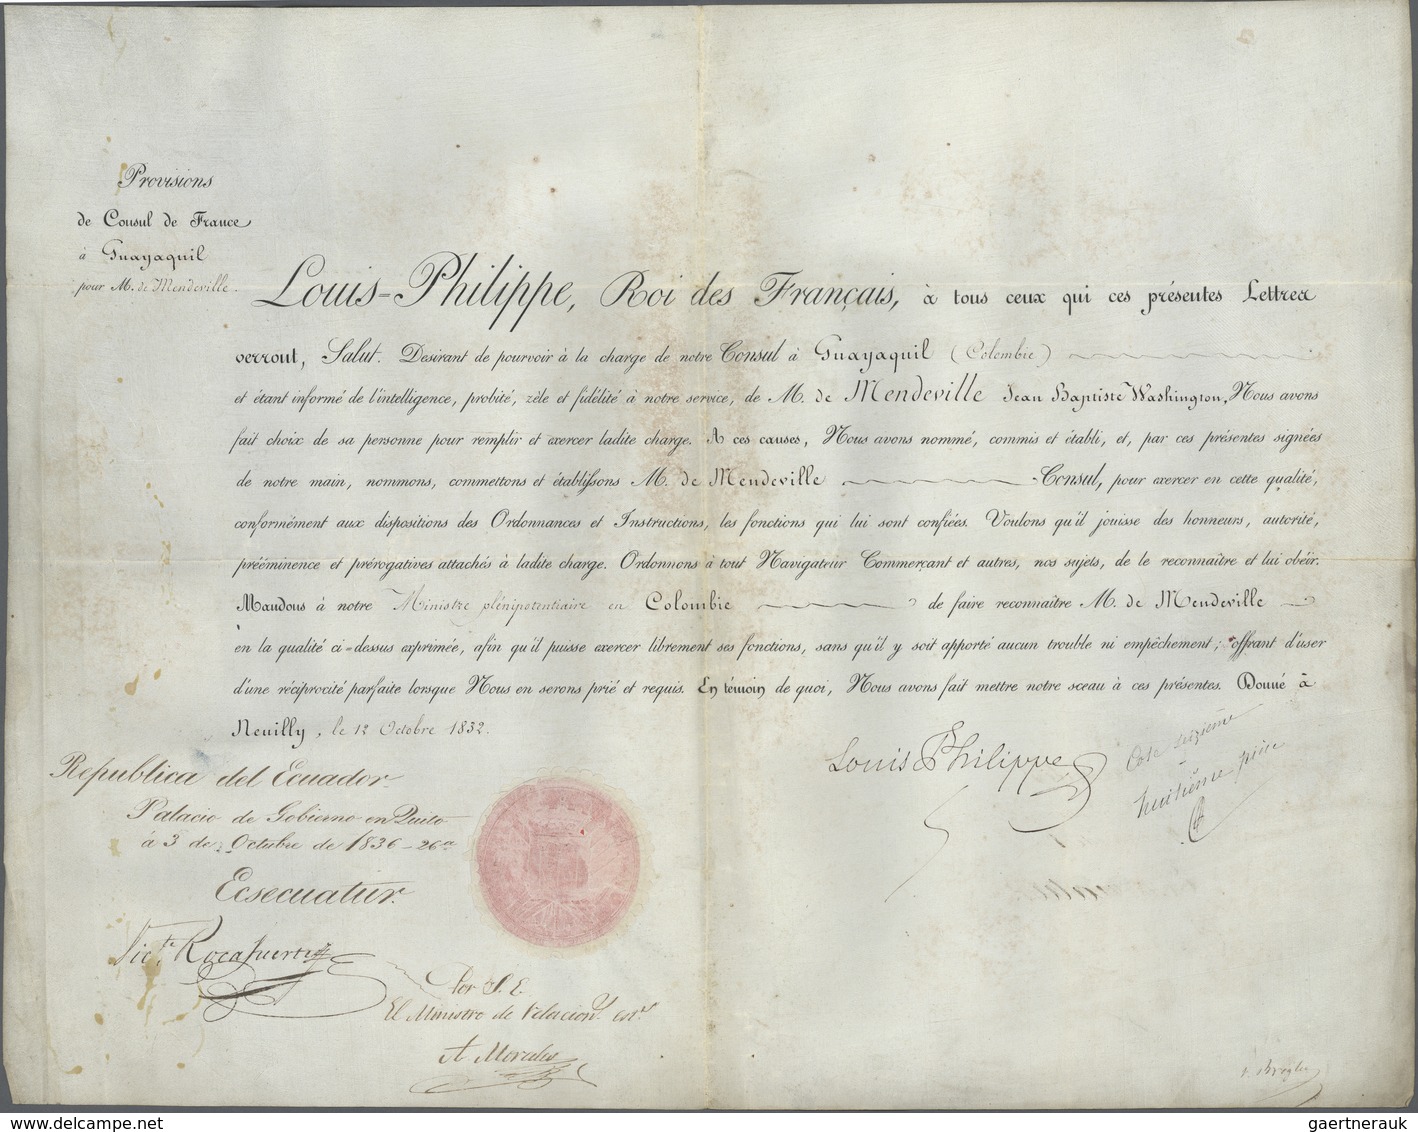 Provisions
de Consul de France
à Guayaquil
pour M. de Mendeville.
Louis=Philippe, Roi des Français, à tous ceux qui ces présentes Lettres
verront, Salut. Desirant de pourvoir à la charge de notre Consul à Guayaquil (Colombie)
et étant informé de l'intelligence, probité, zèle et fidélité à notre service, de M. de Mendeville Jean Baptiste Washington, Nous avons
fait choix de sa personne pour remplir et exercer ladite charge. A ces causes, Nous avons nommé, commis et établi, et, par ces présentes signées
de notre main, nommons, commettons et établissons M. de Mendeville Consul, pour exercer en cette qualité,
conformément aux dispositions des Ordonnances et Instructions, les fonctions qui lui sont confiées. Voulons qu'il jouisse des honneurs, autorité,
prééminence et prérogatives attachés à ladite charge. Ordonnons à tout Navigateur Commerçant et autres, nos sujets, de le reconnaître et lui obéir.
Mandons à notre Ministre plénipotentiaire en Colombie de faire reconnaître M. de Mendeville
en la qualité ci=dessus exprimée, afin qu'il puisse exercer librement ses fonctions, sans qu'il y soit apporté aucun trouble ni empêchement; offrant d'user
d'une réciprocité parfaite lorsque Nous en serons prié et requis. En témoin de quoi, Nous avons fait mettre notre sceau à ces présentes. Donné à
Neuilly, le 12 Octobre 1832.
Louis Philippe
Cote seizième
huitième pièce
Republica del Ecuador
Palacio de Gobierno en Quito
á 3 de Octubre de 1836-26º
Ecsecuatur.
Victe. Rocafuerte
Por S. E.
El Ministro de
A Morales
gaertnerauk